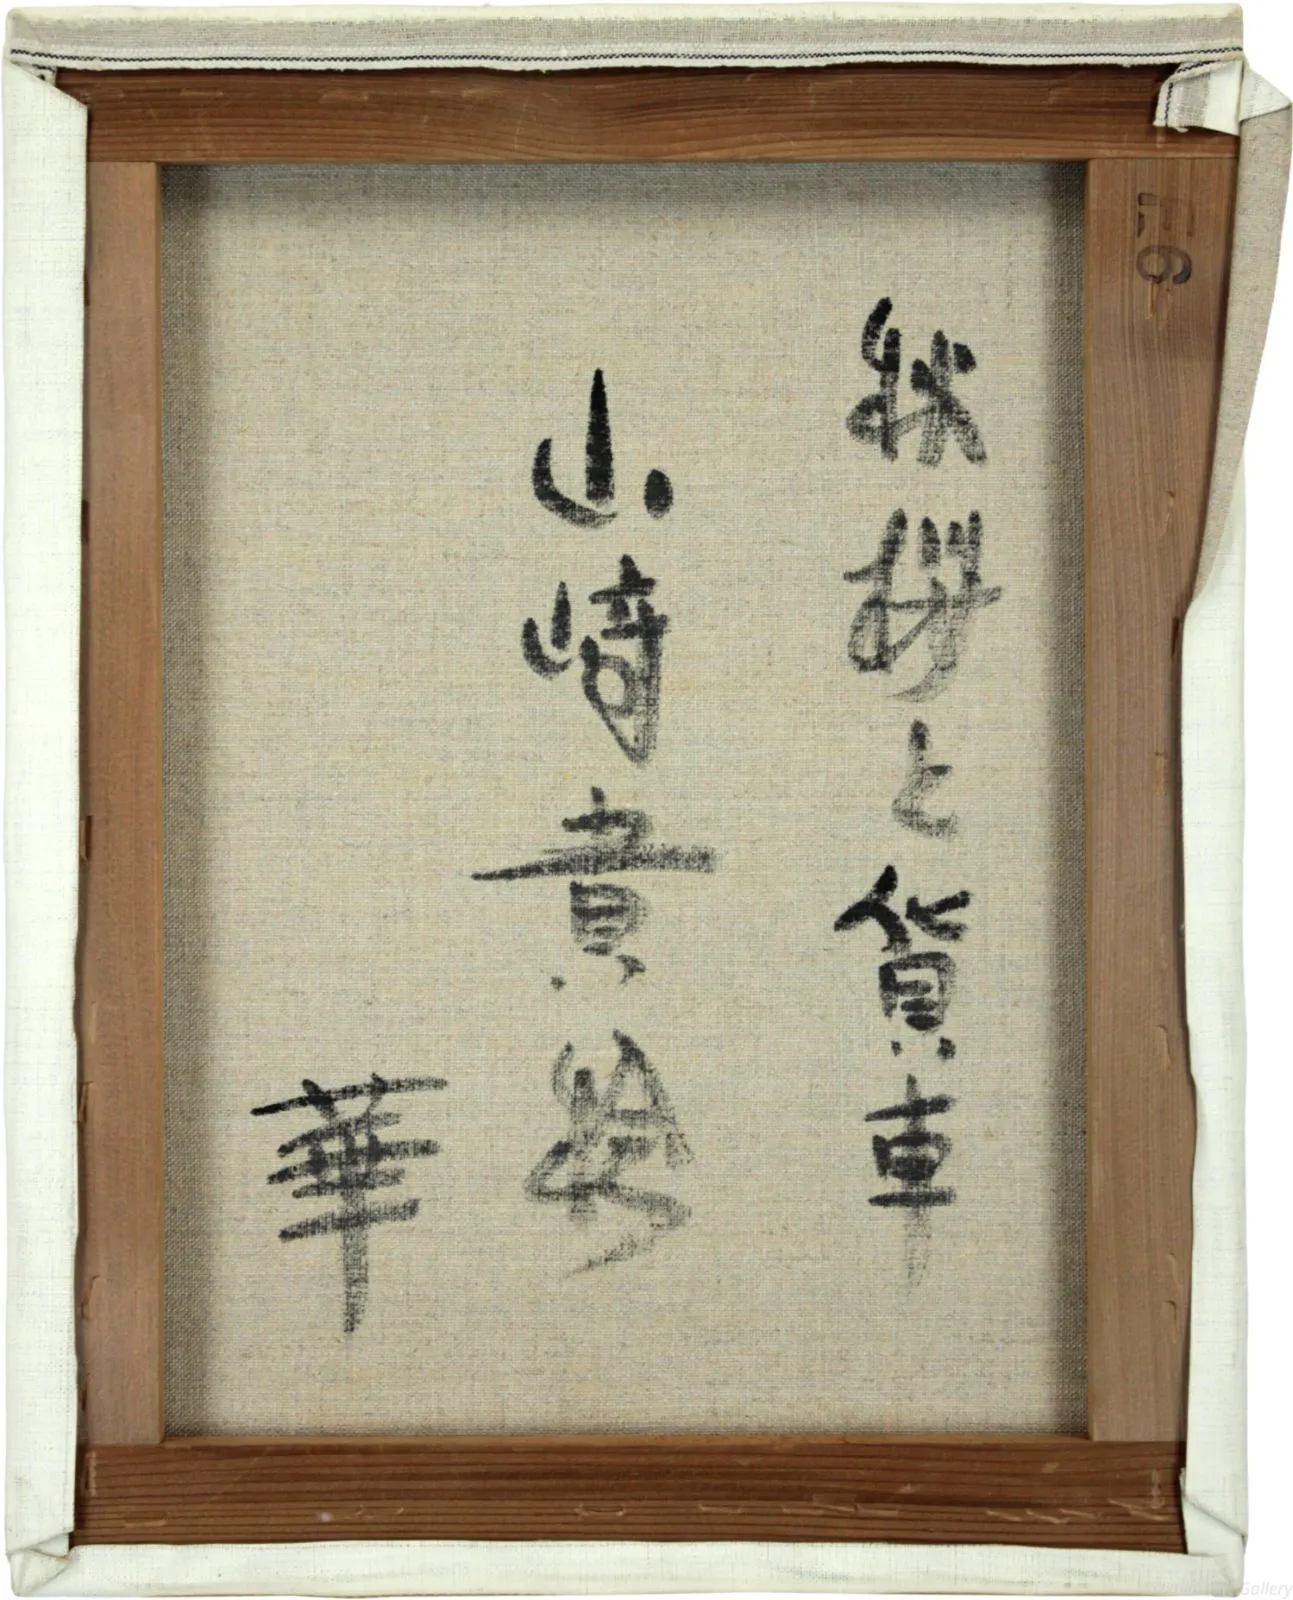 秋桜と貨車
山崎貴
華
F6
Gallery